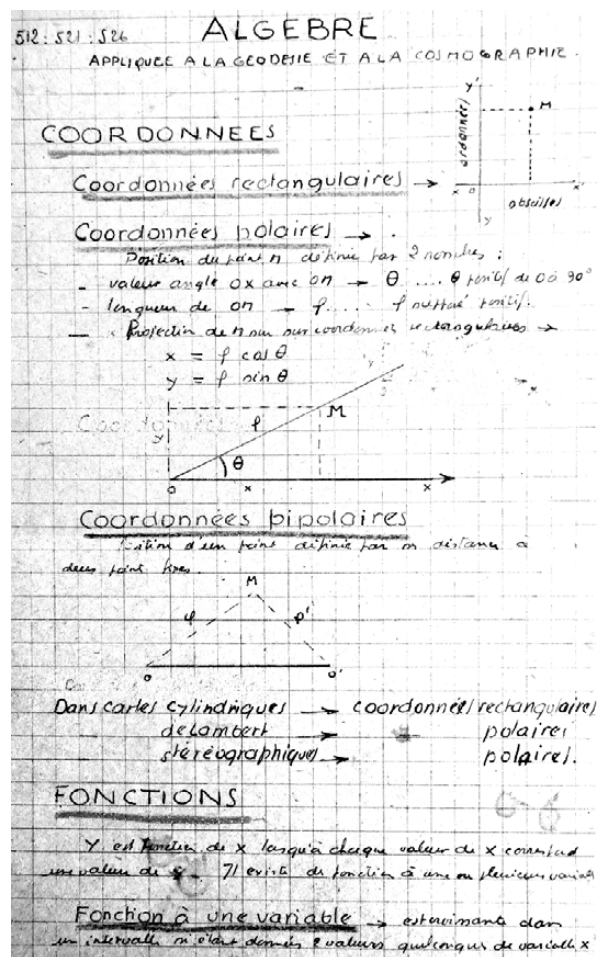 512 : 521 : 526
ALGEBRE
APPLIQUEE A LA GEODESIE ET A LA COSMOGRAPHIE.
y'
ordonnées
M
x o x'
abscisses
y
COORDONNEES
Coordonnées rectangulaires →
Coordonnées polaires →
Position du point M définie par 2 nombres :
- valeur angle Ox avec OM → θ .... θ positif de 0 à 90°
- longueur de OM → ρ .... ρ positif.
— Projection de M sur coordonnées rectangulaires →
x = ρ cos θ
y = ρ sin θ
M
y ρ
θ
o x x
Coordonnées bipolaires
d'un point définie par distance a
deux point fixes.
M
ρ ρ'
o o'
Dans cartes cylindriques → coordonnées rectangulaires
de Lambert → polaires
stéréographiques → polaires.
FONCTIONS
Y est fonction de x lorsqu'à chaque valeur de x correspond
une valeur de Il existe de fonction à une ou plusieurs
Fonction à une variable → est croissante dans
un intervalle étant données 2 valeurs quelconques de variable x